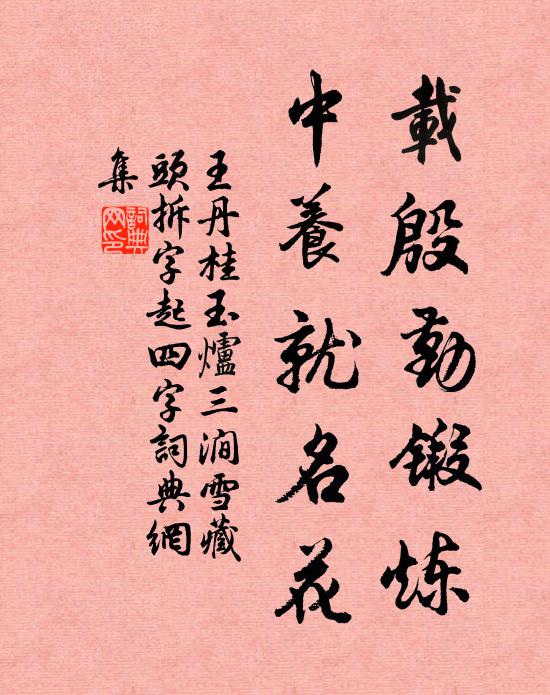 載殷勤鍛炼
中養就名花
王丹桂玉爐三澗雪藏
頭拆字起四字詞典網
集
詞典网印